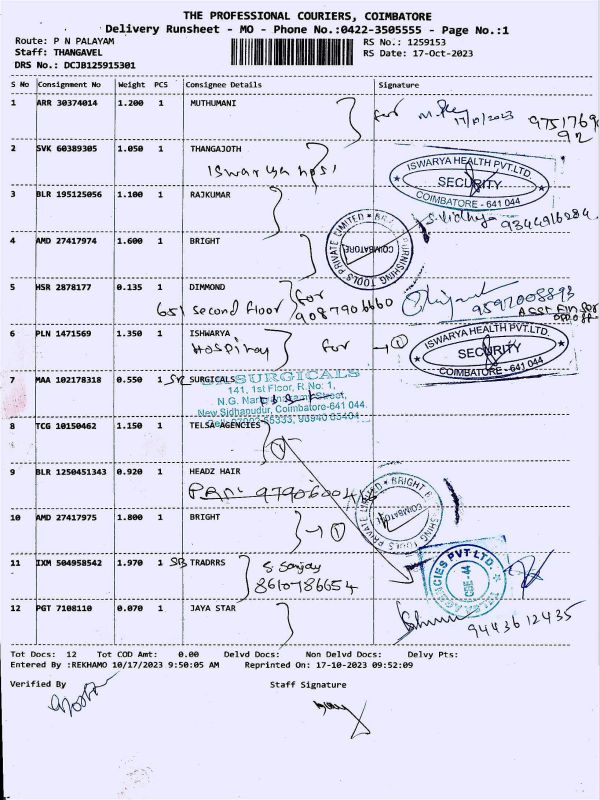 THE PROFESSIONAL COURIERS, COIMBATORE
Delivery Runsheet - MO - Phone No.:0422-3505555 - Page No.:1
Route: P N PALAYAM RS No.: 1259153
Staff: THANGAVEL RS Date: 17-Oct-2023
DRS No.: DCJB125915301
S No Consignment No Weight PCS Consignee Details Signature
1 ARR 30374014 1.200 1 MUTHUMANI
for 17/10/2023 9751769
92
2 SVK 60389305 1.050 1 THANGAJOTH
Iswarya hosi
ISWARYA HEALTH PVT.LTD.
SECURITY
COIMBATORE - 641 044
3 BLR 195125056 1.100 1 RAJKUMAR
S. Vidhya 9344916284
4 AMD 27417974 1.600 1 BRIGHT
COIMBATORE
5 HSR 2878177 0.135 1 DIMMOND
651 second floor for 9087906660
9597008893
6 PLN 1471569 1.350 1 ISHWARYA
Hospital for → 1
ISWARYA HEALTH PVT.LTD.
SECURITY
COIMBATORE - 641 044
7 MAA 102178318 0.550 1 SR SURGICALS
SURGICALS
141, 1st Floor, R.No: 1,
New Sidhanudur, Coimbatore-641 044
8 TCG 10150462 1.150 1 TELSA AGENCIES
1
9 BLR 1250451343 0.920 1 HEADZ HAIR
10 AMD 27417975 1.800 1 BRIGHT
→ 1
11 IXM 504958542 1.970 1 SB TRADRRS
S. Sanjay
8610786654
AGENCIES PVT.LTD.
CBE-44
12 PGT 7108110 0.070 1 JAYA STAR
9443612435
Tot Docs: 12 Tot COD Amt: 0.00 Delvd Docs: Non Delvd Docs: Delvy Pts:
Entered By :REKHAMO 10/17/2023 9:50:05 AM Reprinted On: 17-10-2023 09:52:09
Verified By Staff Signature